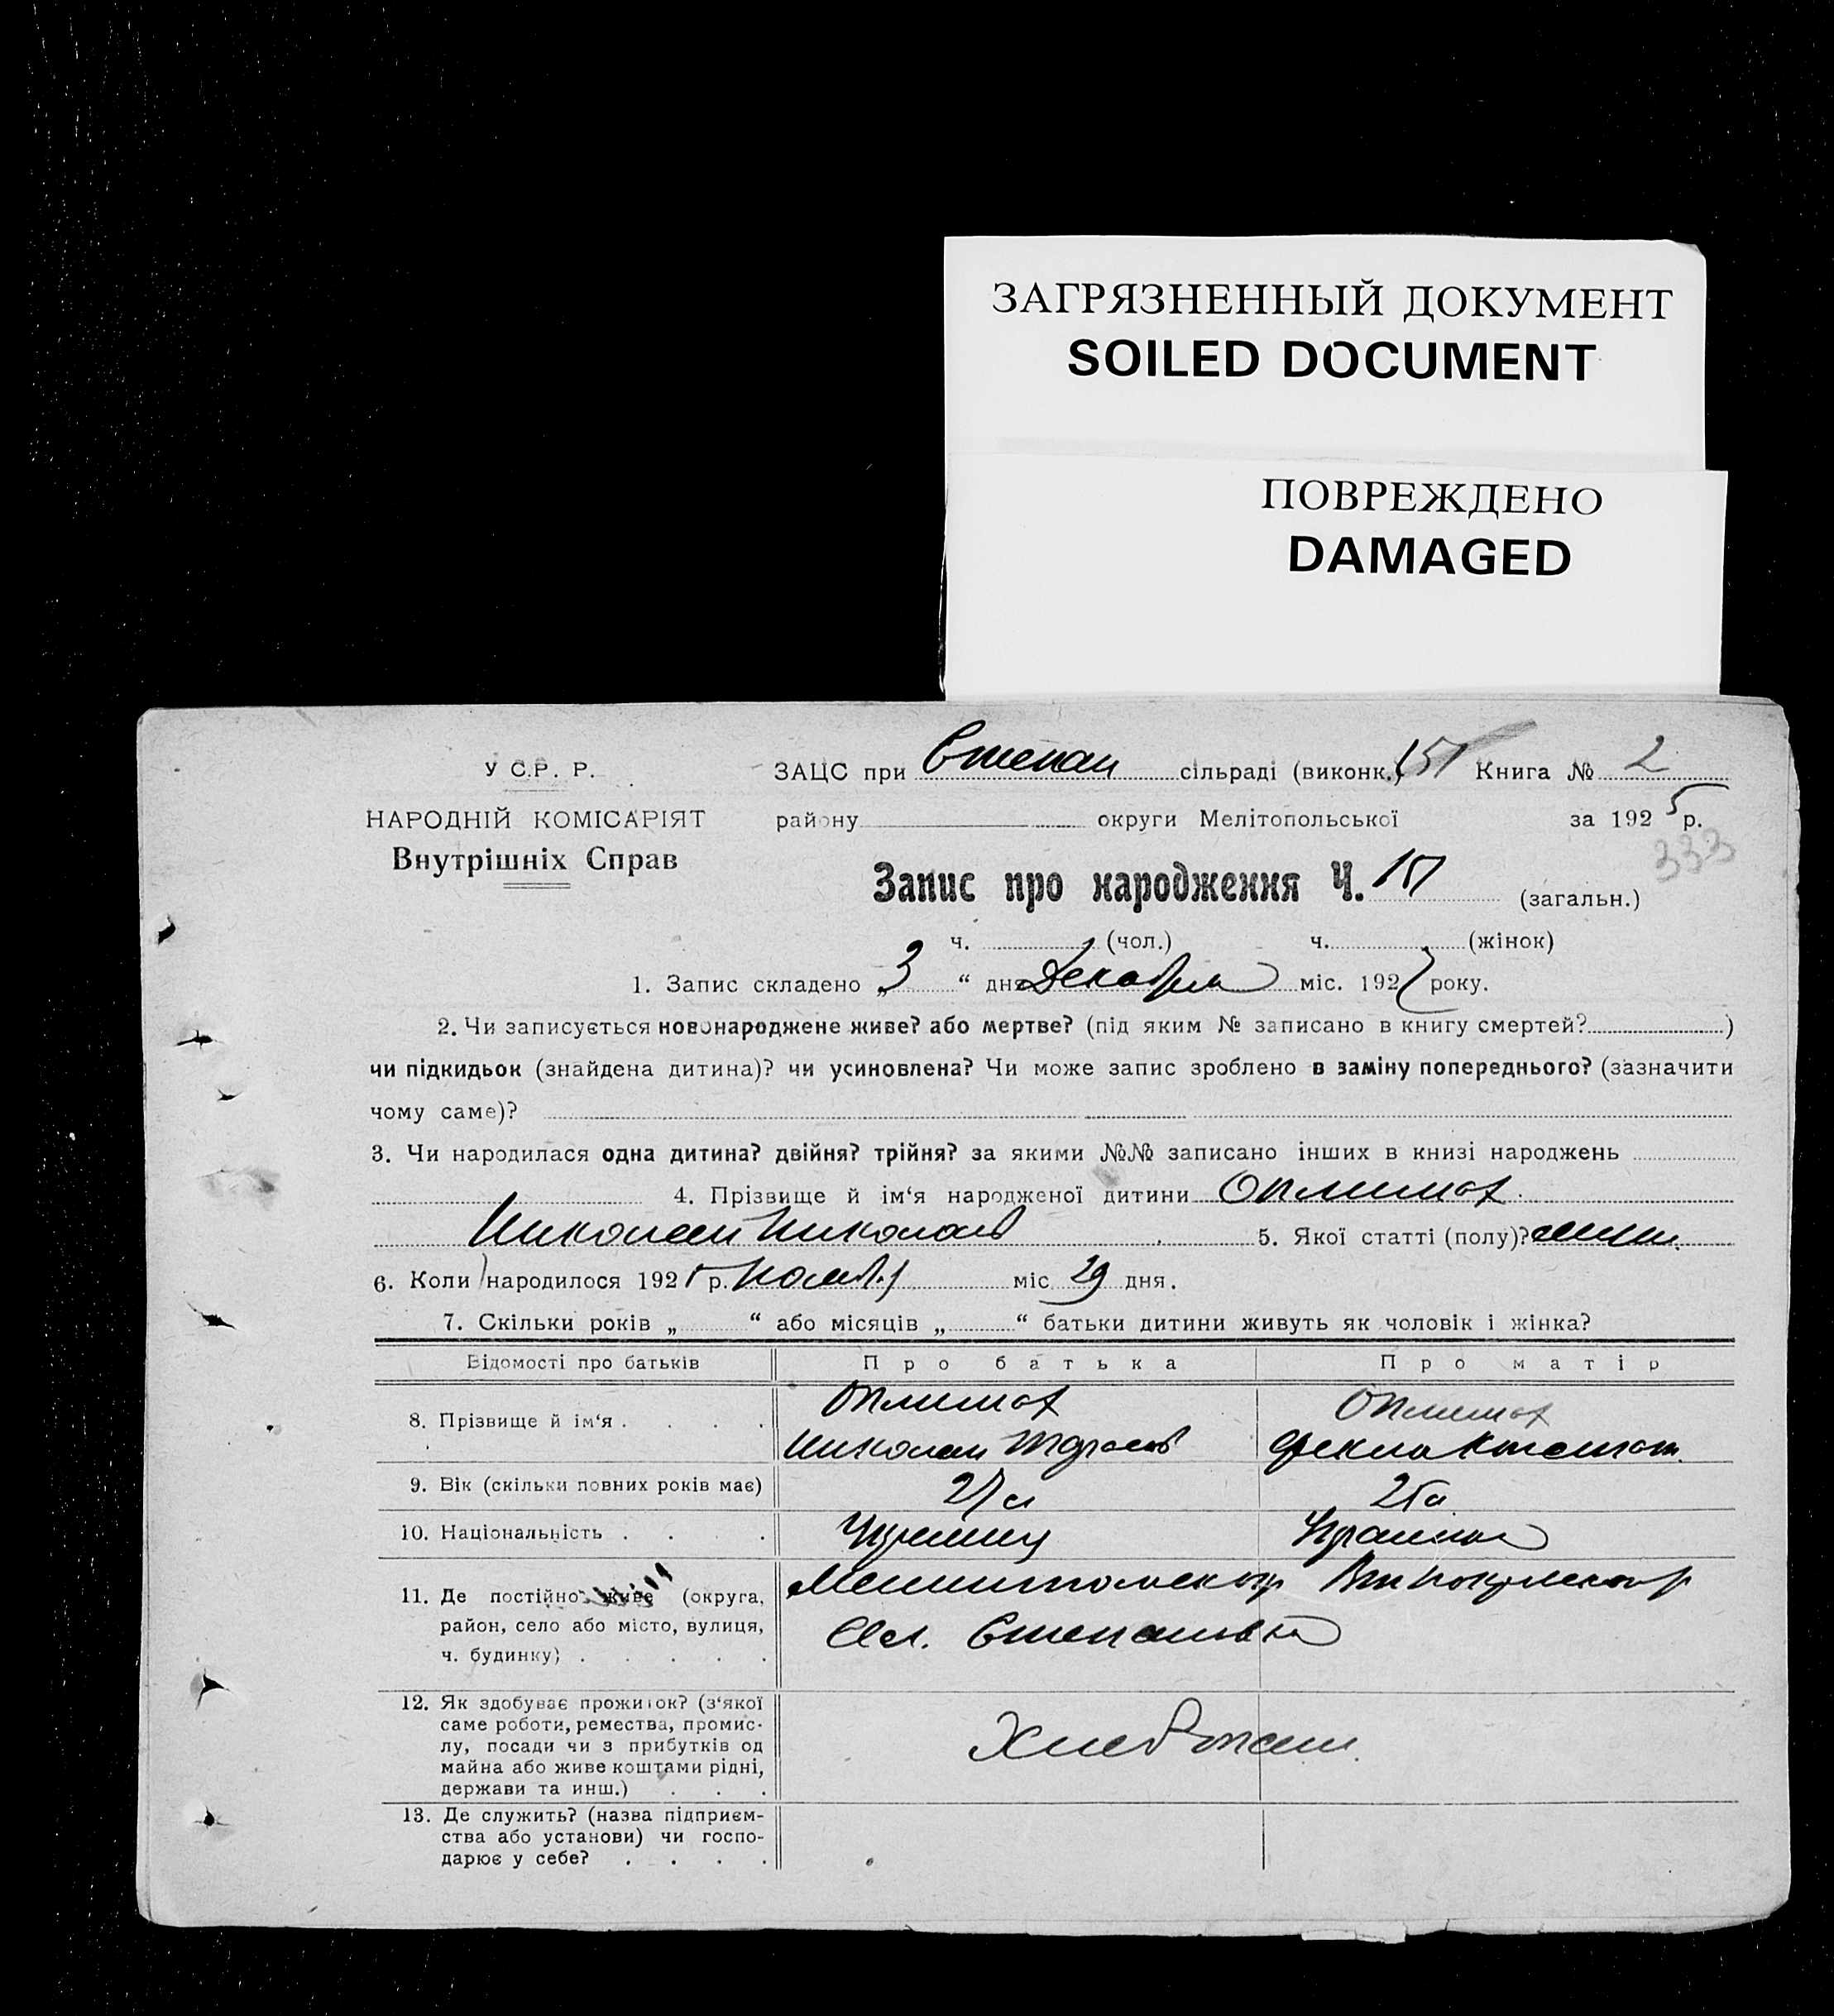 ЗАГРЯЗНЕННЫЙ ДОКУМЕНТ
SOILED DOCUMENT
ПОВРЕЖДЕНО
DAMAGED
У С.Р. Р. ЗАЦС при Степан сільраді (виконк.) 151 Книга № 2
НАРОДНІЙ КОМІСАРІЯТ району округи Мелітопольської за 1925 р.
333
Внутрішніх Справ
Запис про народження Ч. 151 (загальн.)
ч. (чол.) ч. (жінок)
1. Запис складено „3“ дня Декабря міс. 192 року.
2. Чи записується новонароджене живе? або мертве? (під яким № записано в книгу смертей? )
чи підкидьок (знайдена дитина)? чи усиновлена? Чи може запис зроблено в заміну попереднього? (зазначити
чому саме)?
3. Чи народилася одна дитина? двійня? трійня? за якими №№ записано інших в книзі народжень
4. Прізвище й ім‘я народженої дитини
Николай Николаев 5. Якої статті (полу)?
6. Коли народилося 1925 р. Нояб. міс 29 дня.
7. Скільки років „ “ або місяців „ “ батьки дитини живуть як чоловік і жінка?
Відомості про батьків Про батька Про матір
8. Прізвище й ім‘я . . . .
Николай Фекла
9. Вік (скільки повних років має) 27 л 25 л
10. Національність . . . . Украинец Украинка
11. Де постійно живе (округа, Мелитопольскаго
район, село або місто, вулиця, Сел. Степановка
ч. будинку) . . . . .
12. Як здобуває прожиток? (з‘якої
саме роботи, ремества, промис-
лу, посади чи з прибутків од Хлебопаш.
майна або живе коштами рідні,
держави та инш.) . . .
13. Де служить? (назва підприєм-
ства або установи) чи госпо-
дарює у себе? . . . .